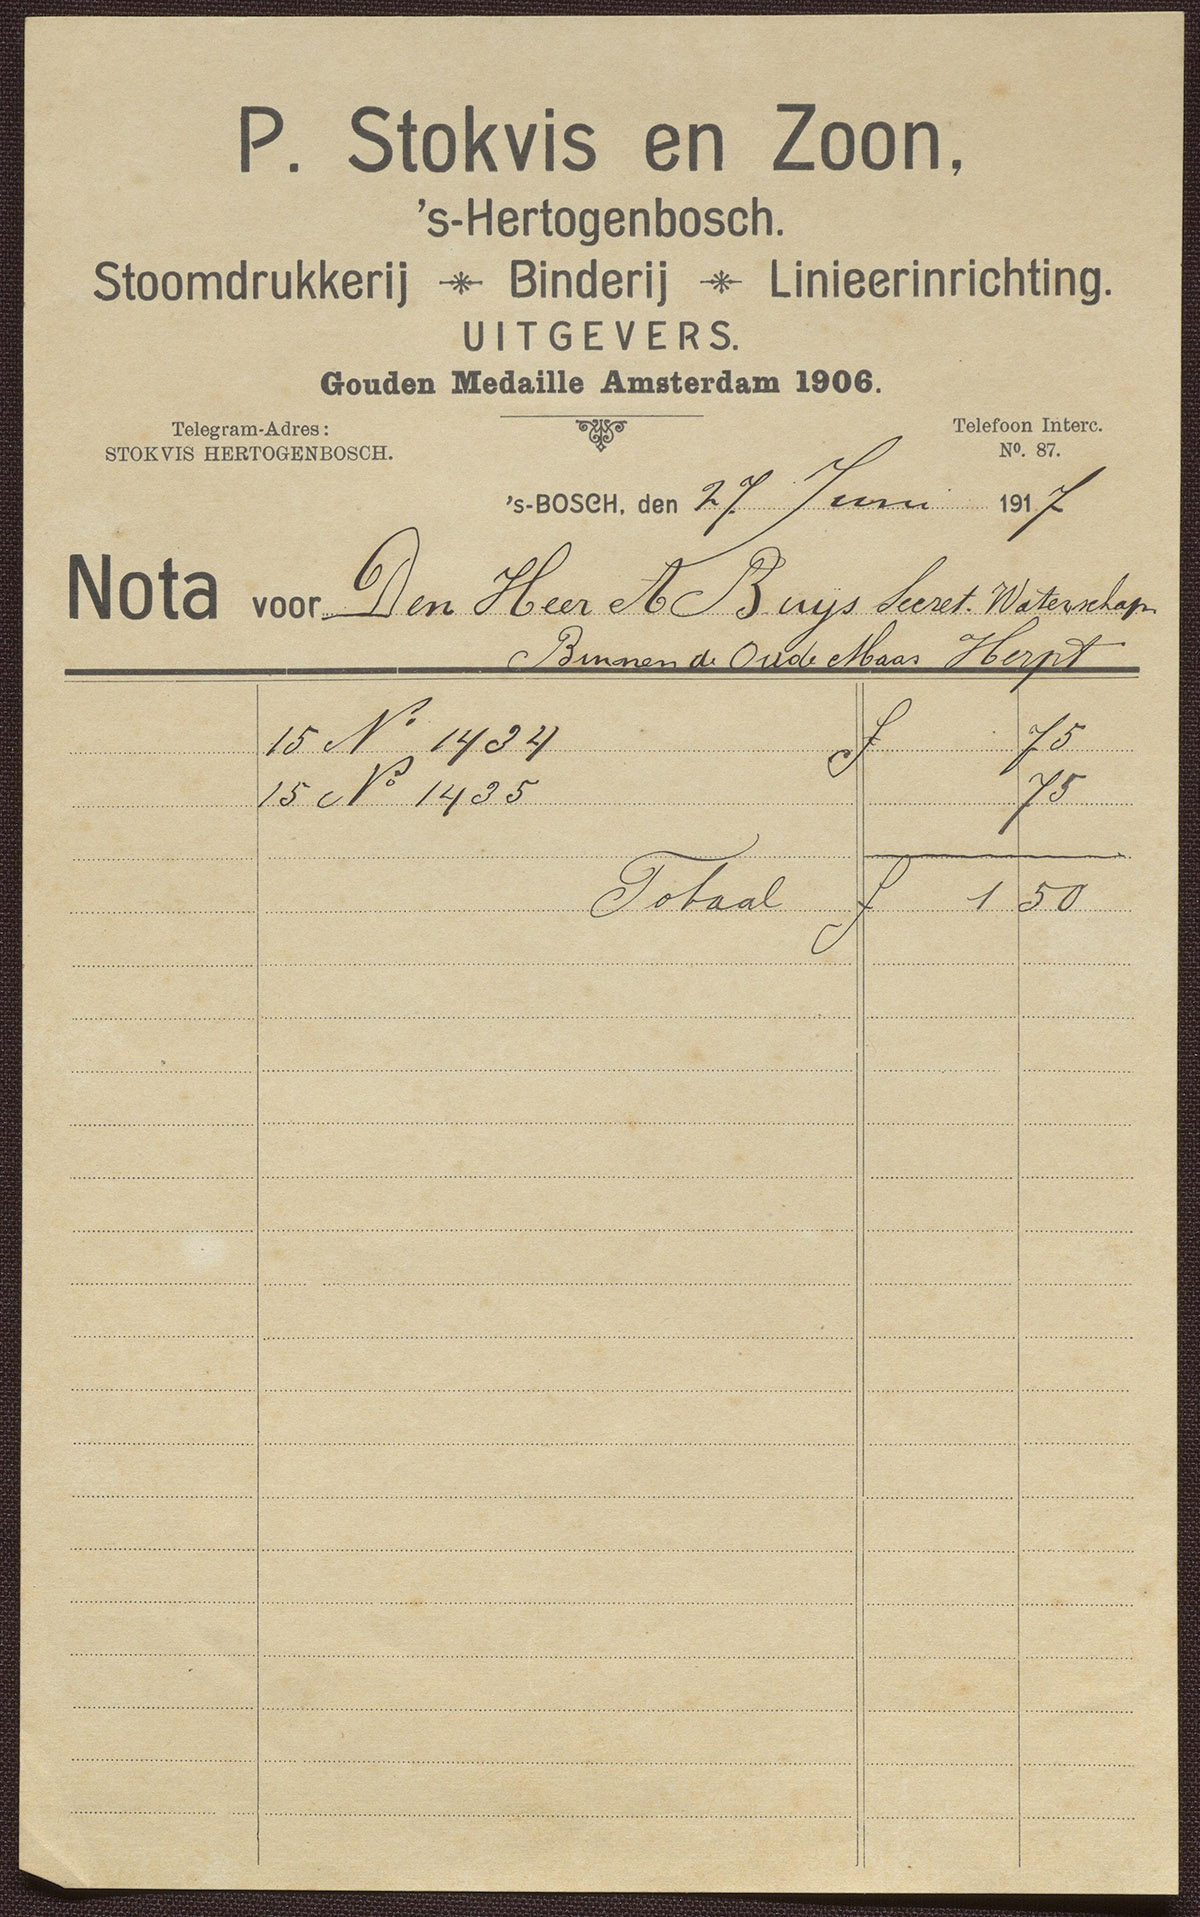 P. Stokvis en Zoon,
's-Hertogenbosch.
Stoomdrukkerij Binderij Linieerinrichting.
UITGEVERS.
Gouden Medaille Amsterdam 1906.
Telegram-Adres:
STOKVIS HERTOGENBOSCH.
Telefoon Interc.
No. 87.
's-BOSCH, den 27 Juni 1917
Nota voor Den Heer A Buijs Secret. Waterschap
Binnen de Oude Maas Herpt
15 No 1434 f 75
15 No 1435 75
Totaal f 1 50